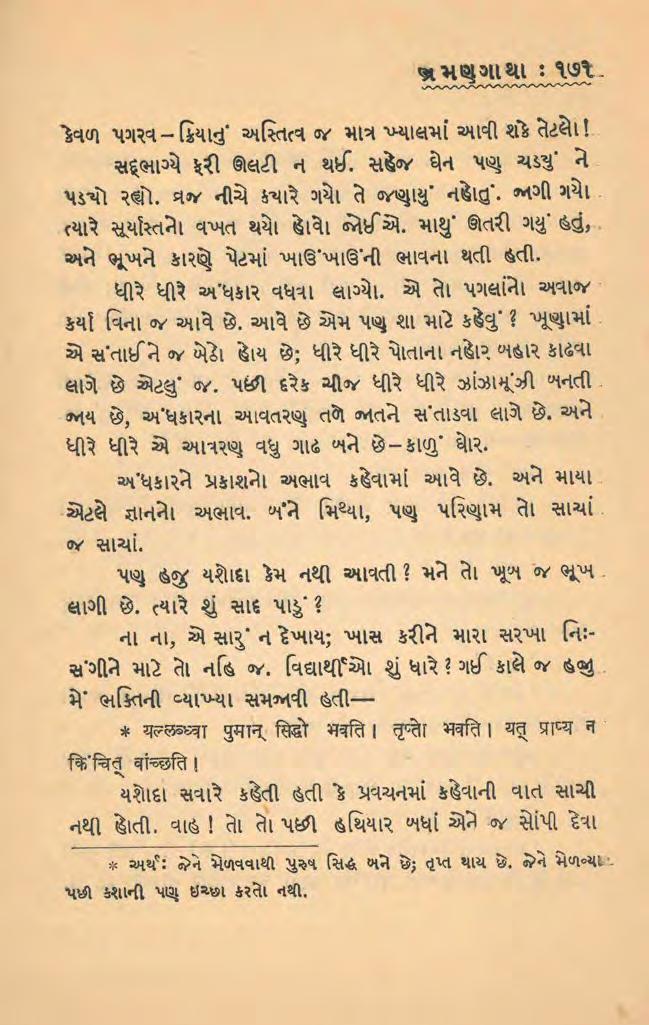 ભ્રમણગાથા : ૧૭૧
કેવળ પગરવ – ક્રિયાનું અસ્તિત્વ જ માત્ર ખ્યાલમાં આવી શકે તેટલો!
સદ્ભાગ્યે ફરી ઊલટી ન થઈ. સહેજ ઘેન પણ ચડ્યું ને
પડ્યો રહ્યો. વ્રજ નીચે ક્યારે ગયો તે જણાયું નહોતું. જાગી ગયો
ત્યારે સૂર્યાસ્તનો વખત થયો હોવો જોઈએ. માથું ઊતરી ગયું હતું,
અને ભૂખને કારણે પેટમાં ખાઉંખાઉંની ભાવના થતી હતી.
ધીરે ધીરે અંધકાર વધવા લાગ્યો. એ તો પગલાંનો અવાજ
કર્યા વિના જ આવે છે. આવે છે એમ પણ શા માટે કહેવું? ખૂણામાં
એ સંતાઈને જ બેઠો હોય છે; ધીરે ધીરે પોતાના નહોર બહાર કાઢવા
લાગે છે એટલું જ. પછી દરેક ચીજ ધીરે ધીરે ઝાંઝામૂંઝી બનતી
જાય છે, અંધકારના આવતરણ તળે જાતને સંતાડવા લાગે છે. અને
ધીરે ધીરે એ આવરણ વધુ ગાઢ બને છે – કાળું ઘોર.
અંધકારને પ્રકાશનો અભાવ કહેવામાં આવે છે. અને માયા
એટલે જ્ઞાનનો અભાવ. બંને મિથ્યા, પણ પરિણામ તો સાચાં
જ સાચાં.
પણ હજુ યશોદા કેમ નથી આવતી? મને તો ખૂબ જ ભૂખ
લાગી છે. ત્યારે શું સાદ પાડું?
ના ના, એ સારું ન દેખાય; ખાસ કરીને મારા સરખા નિઃ-
સંગીને માટે તો નહિ જ. વિદ્યાર્થીઓ શું ધારે? ગઈ કાલે જ હજુ
મેં ભક્તિની વ્યાખ્યા સમજાવી હતી—
* यल्लब्ध्वा पुमान् सिद्धो भवति। तृप्तो भवति। यत् प्राप्य न
किंचित् वांच्छति।
યશોદા સવારે કહેતી હતી કે પ્રવચનમાં કહેવાની વાત સાચી
નથી હોતી. વાહ! તો તો પછી હથિયાર બધાં એને જ સોંપી દેવા
* અર્થ: જેને મેળવવાથી પુરુષ સિદ્ધ બને છે; તૃપ્ત થાય છે. જેને મેળવ્યા
પછી કશાની પણ ઇચ્છા કરતો નથી.